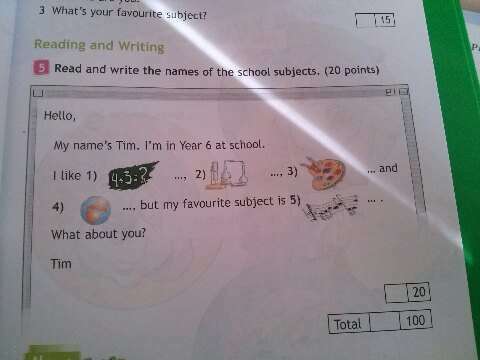 3 What's your favourite subject?
15
Reading and Writing
5 Read and write the names of the school subjects. (20 points)
Hello,
My name's Tim. I'm in Year 6 at school.
I like 1) 4+3=? ..., 2) ..., 3) ... and
4) ..., but my favourite subject is 5) ... .
What about you?
Tim
20
Total 100